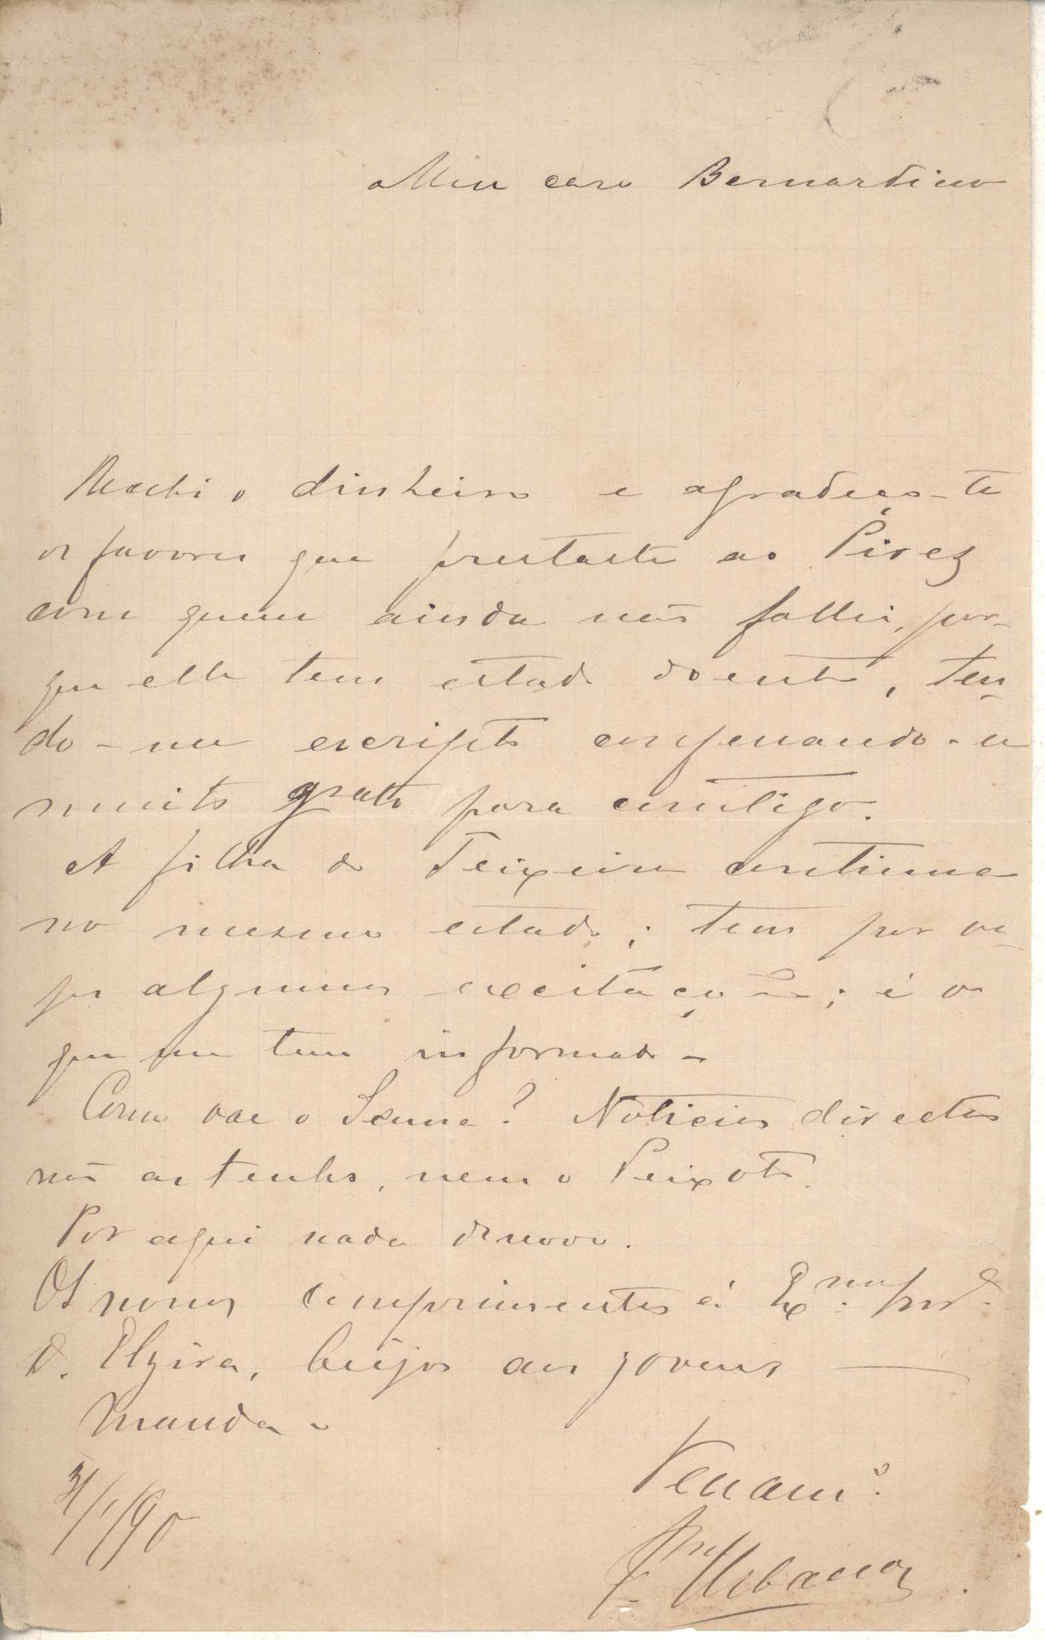 Meu caro Bernardino
Recebi o dinheiro e agradeço-te
os favores que prestaste ao Pires
com quem ainda não fallei, por-
que elle tem estado doente, ten-
do-me escripto confessando-se
muito grato para comtigo.
A filha do Teixeira continua
no mesmo estado; tem por ve-
zes algumas excitações; é o
que me tem informado.
Como vae o Senna? Noticias directas
não as tenho, nem o Peixoto.
Por aqui nada de novo.
Os nossos comprimentos á Exma
D. Elzira, beijos aos jovens
Manda o
31/1/90
F. Urbano